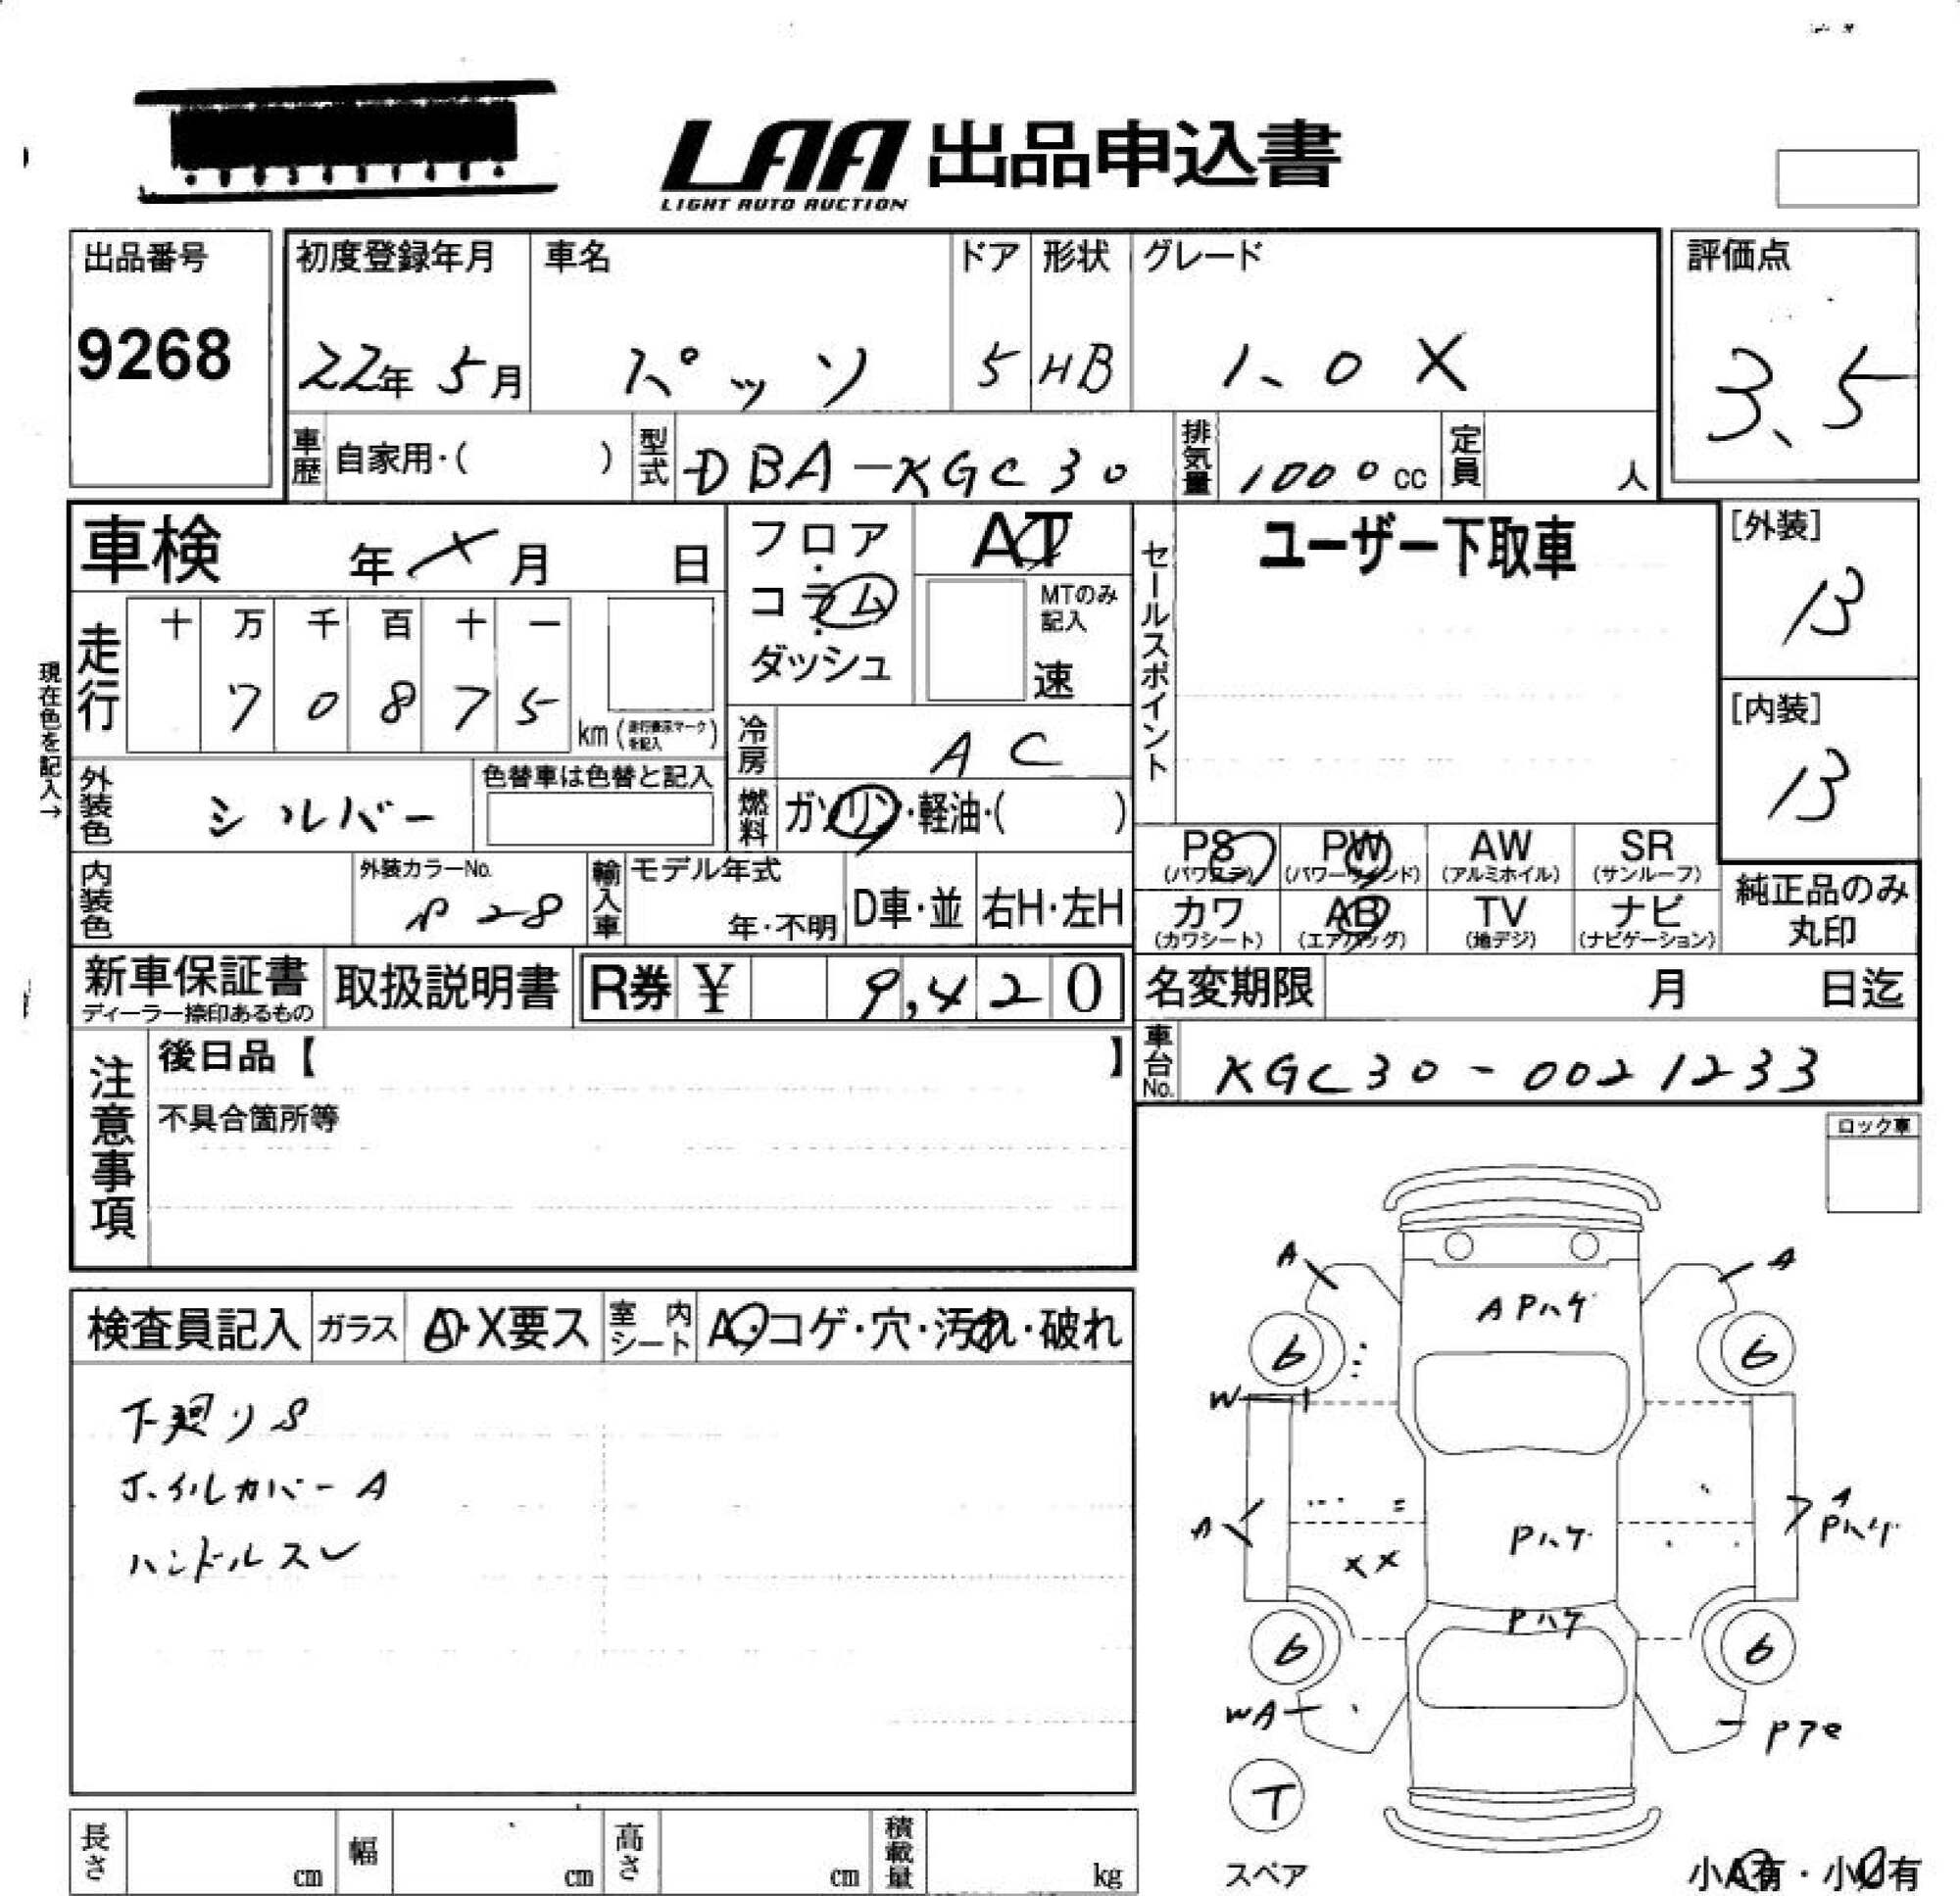 LAA 出品申込書
LIGHT AUTO AUCTION
出品番号
9268
初度登録年月 車名 ドア 形状 グレード
22年 5月 パッソ 5 HB 1.0X
評価点
3.5
車歴 自家用・( ) 型式 DBA-KGC30 排気量 1000cc 定員 人
車検 年 X 月 日
フロア・コラム・ダッシュ
AT
MTのみ記入
速
セールスポイント
ユーザー下取車
[外装]
B
[内装]
B
現在色を記入→
走行
十 万 千 百 十 一
7 0 8 7 5
km(走行表示マークを記入)
冷房 AC
燃料 ガソリン・軽油・( )
外装色 シルバー
色替車は色替と記入
内装色
外装カラーNo.
P28
輸入車 モデル年式
年・不明
D車・並 右H・左H
PS (パワステ) PW (パワーウィンド) AW (アルミホイル) SR (サンルーフ)
カワ (カワシート) AB (エアバッグ) TV (地デジ) ナビ (ナビゲーション)
純正品のみ
丸印
新車保証書
ディーラー捺印あるもの
取扱説明書
R券 ¥ 9,420
名変期限 月 日迄
車台No. KGC30-0021233
注意事項
後日品【 】
不具合箇所等
ロック車
検査員記入 ガラス A・X要ス 室内シート A・コゲ・穴・汚れ・破れ
下廻りS
ホイルカバーA
ハンドルスレ
A A
APハゲ
6 6
W
A
A
Pハゲ
Pハゲ
XX
Pハゲ
6 6
WA
T
スペア
小A有・小U有
長さ cm 幅 cm 高さ cm 積載量 kg